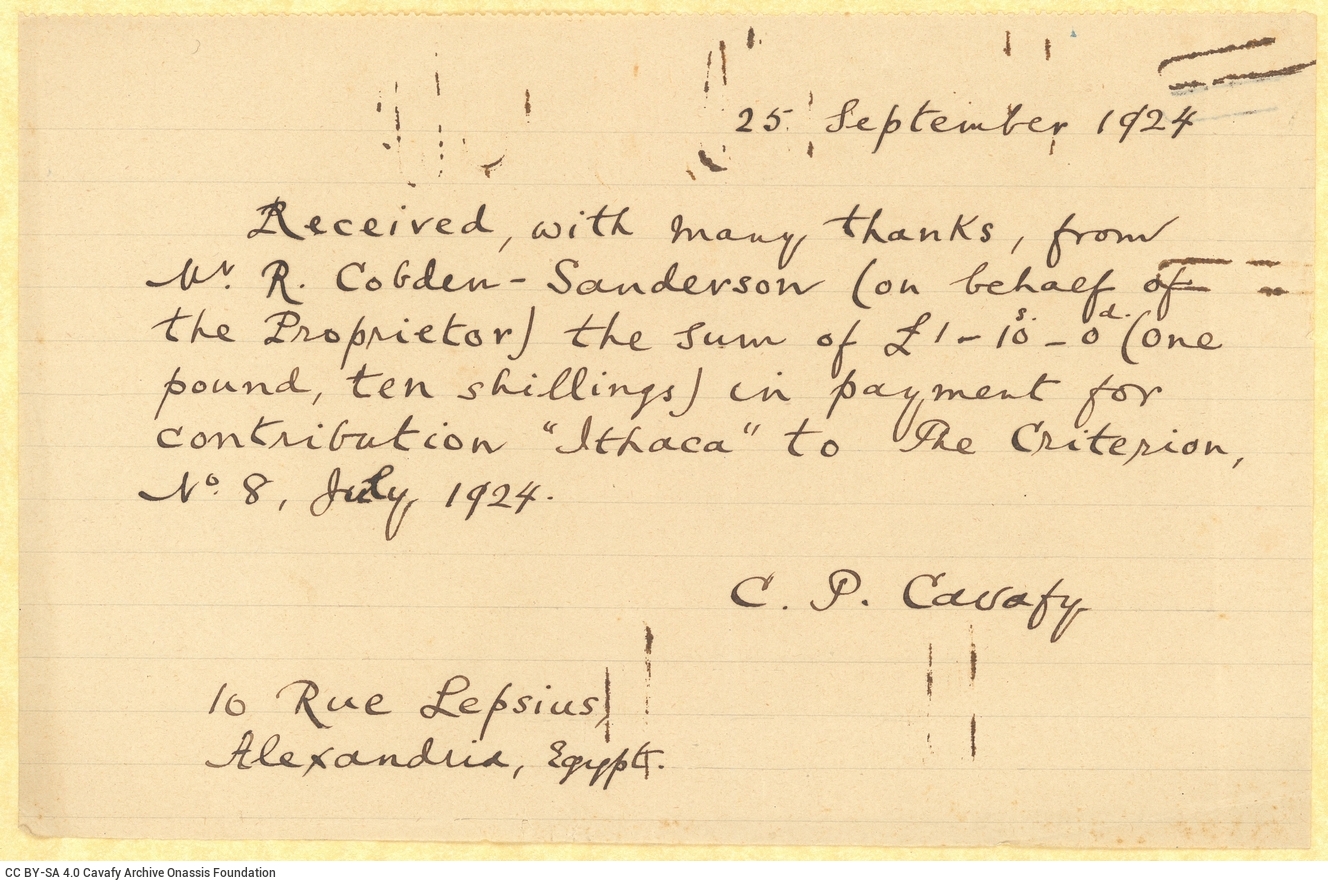 25 September 1924
Received, with many thanks, from
Mr. R. Cobden-Sanderson (on behalf of
the Proprietor) the sum of £1-10s.-0d. (one
pound, ten shillings) in payment for
contribution "Ithaca" to The Criterion,
No. 8, July, 1924.
C. P. Cavafy
10 Rue Lepsius,
Alexandria, Egypt.
CC BY-SA 4.0 Cavafy Archive Onassis Foundation